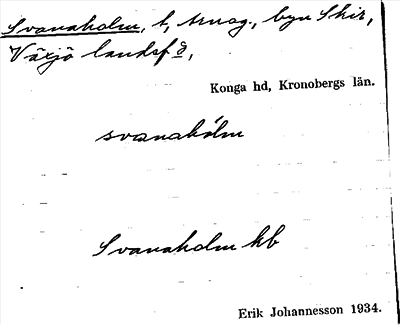 Svanaholm, t, Arnag., byn Skir,
Växjö landsf d,
Konga hd, Kronobergs län.
svanahólm
Svanaholm kb
Erik Johannesson 1934.